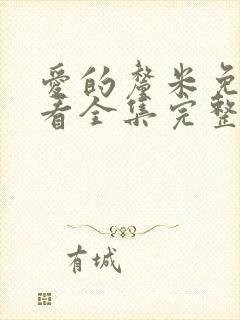 爱的厘米免
看全集完整
有城